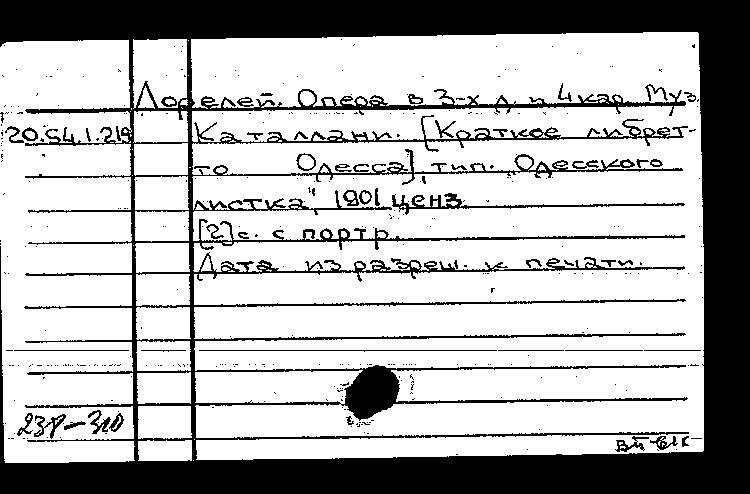 Лорелей. Опера в 3-х д. и 4 кар. Муз.
20.54.1.219
Каталлани. [Краткое либрет-
то Одесса], тип. „Одесского
листка", 1901 ценз.
[2] с. с портр.
Дата из разреш. к печати.
23Р-310